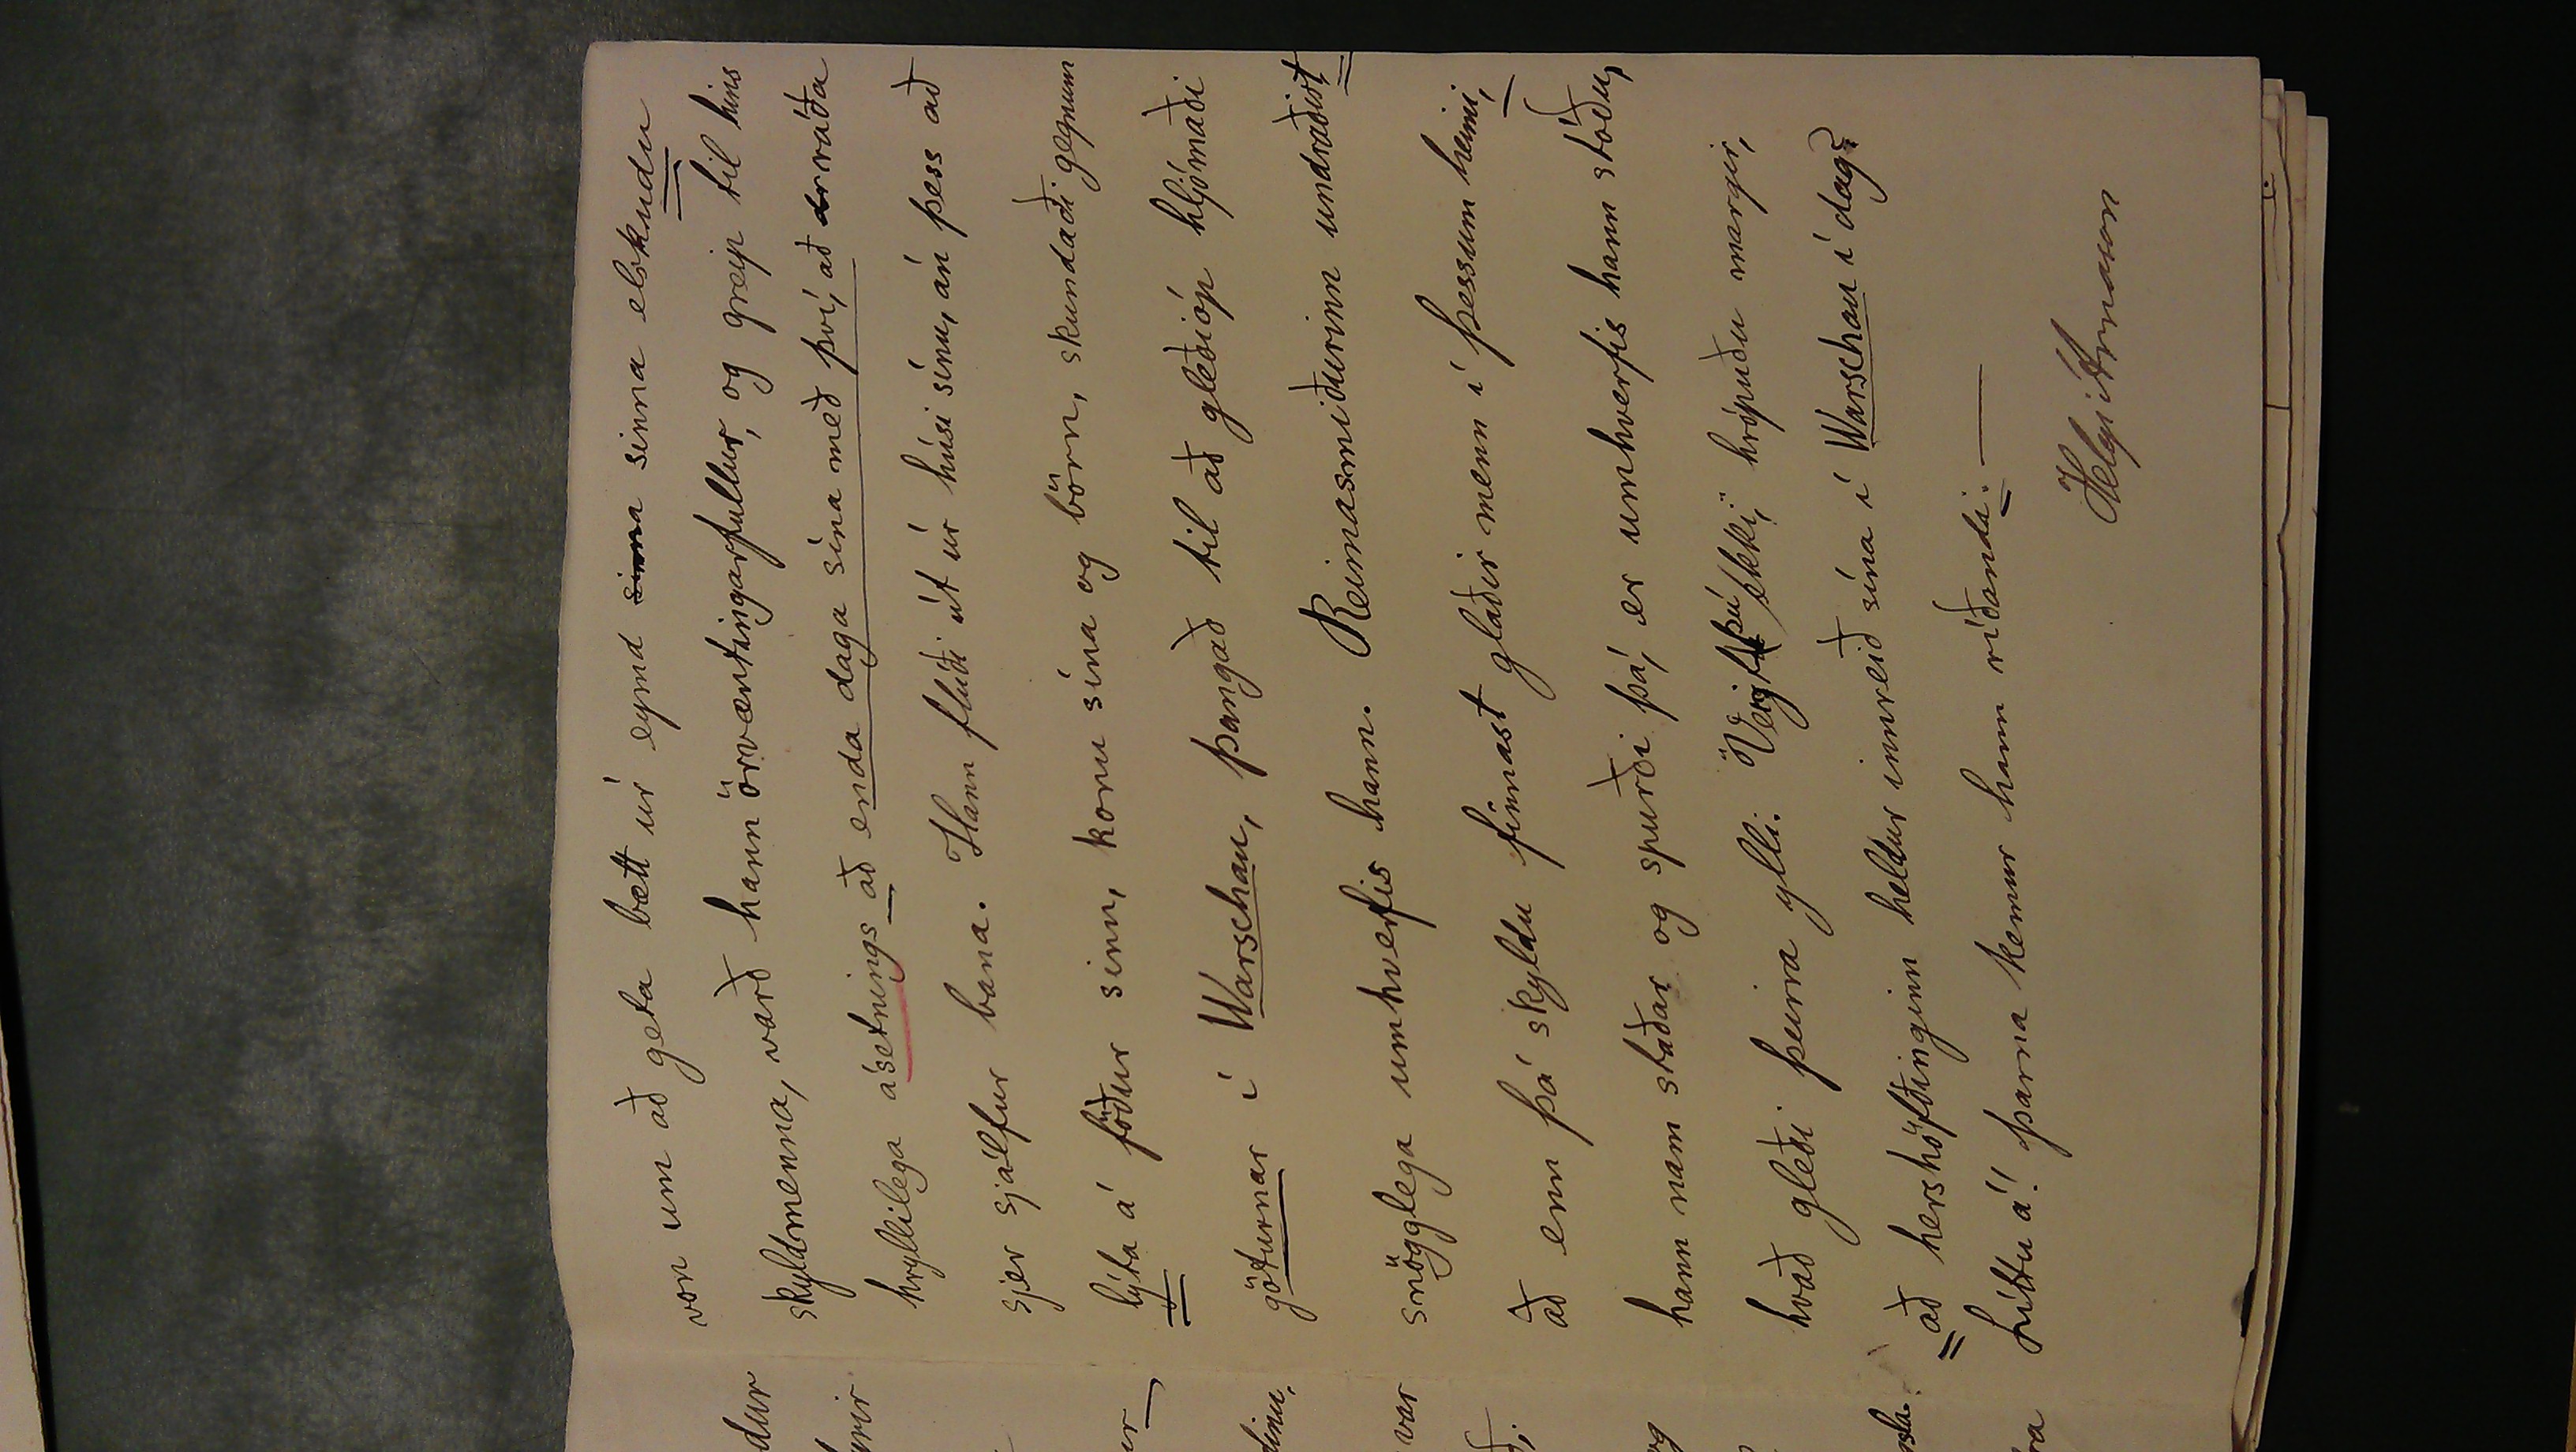 von um að geta bætt úr eymd sinna sinna elskudu
skyldmenna, varð hann örvæntingarfullur, og greip til hins
hryllilega ásetnings að enda daga sína með því, að ráða
sjer sjálfur bana. Hann flúði út úr húsi sínu, án þess að
lýta á föður sinn, konu sína og börn, skundaði gegnum
göturnar í Warschau, þangað til að gleðióp hljómaði
snögglega umhverfis hann. Reimasmiðurinn undraðist
að enn þá skyldu finnast glaðir menn í þessum heimi,
hann nam staðar og spurði þá, er umhverfis hann stóðu,
hvað gleði þeirra ylli. "Veizt þú ekki," hrópuðu margir,
að hershöfðinginn heldur innreið sína í Warschau í dag?
Líttu á! þarna kemur hann ríðandi. —
Helgi Árnason
dur
yrir
er
dinu,
var
ði.
og
ra